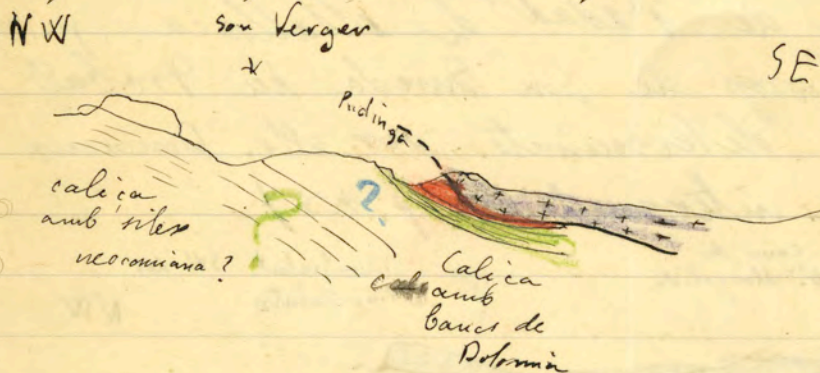 NW
son Verger
SE
Pudinga
caliça
amb silex
neocomiana?
?
?
Caliça
amb
bancs de
Dolomia